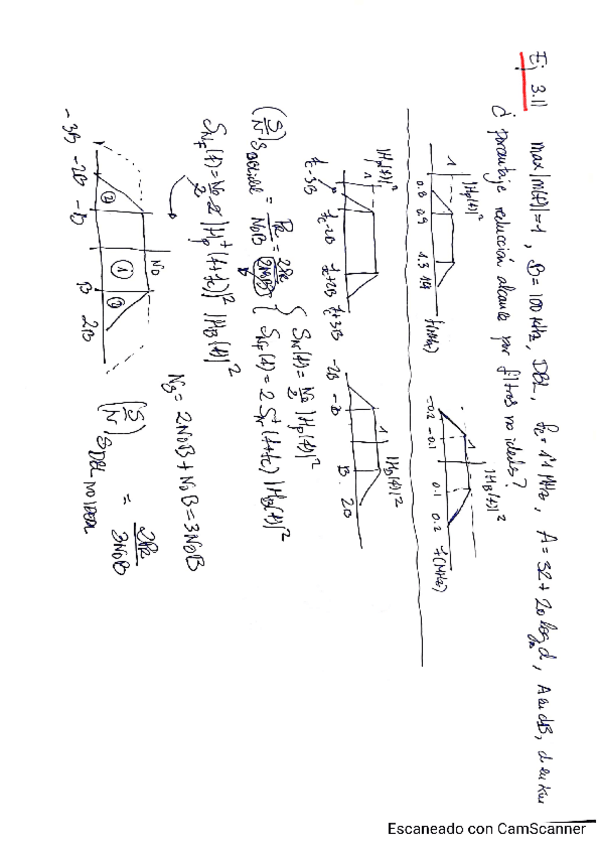 Ej 3.11 max|m(t)|=1, B=100 kHz, DBL, fc=1'1 MHz, A=32+20 log d, A en dB, d en km
¿ porcentaje reducción alcance por filtros no ideales?
|Hp(f)|²
1
0.8 0.9 1.3 1.4 f(MHz)
|HB(f)|²
1
-0.2 -0.1 0.1 0.2 f(MHz)
|Hp(f)|²
1
fc-3B fc-2B fc+2B fc+3B
|HB(f)|²
1
-2B -B B 2B
(S/N)S DBL ideal = 2PR/2N0B
SN(f) = N0/2 |Hp(f)|²
SNF(f) = 2 SN+(f+fc) |HB(f)|²
SNF(f) = N0/2 2 |Hp+(f+fc)|² |HB(f)|²
N0
2 1 2
-3B -2B -B B 2B
NS = 2N0B + N0B = 3N0B
(S/N)S DBL no ideal = 2PR/3N0B
Escaneado con CamScanner